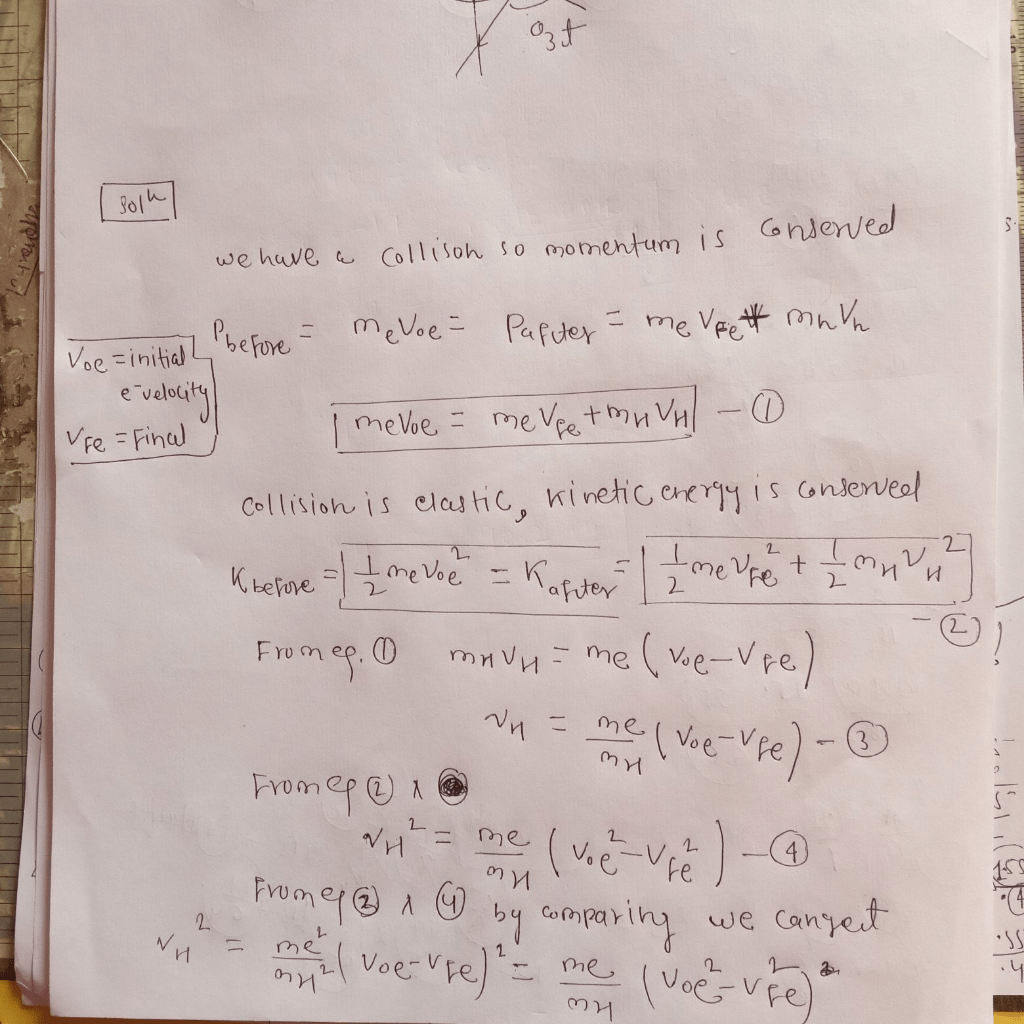 a₃t
Solⁿ
we have a collison so momentum is conserved
Pbefore = meVoe = Pafuter = meVFe + mhVh
Voe = initial
e⁻velocity
VFe = Final
meVoe = meVFe + mHVH - ①
Collision is elastic, kinetic energy is conserved
Kbefore = 1/2 meVoe² = Kafuter = 1/2 meVFe² + 1/2 mHVH²
- ②
From eq. ① mHVH = me (Voe-VFe)
VH = me/mH (Voe-VFe) - ③
From eq ② &
VH² = me/mH (Voe²-VFe²) - ④
From eq ③ & ④ by comparing we canget
VH² = me²/mH² (Voe-VFe)² = me/mH (Voe²-VFe²)